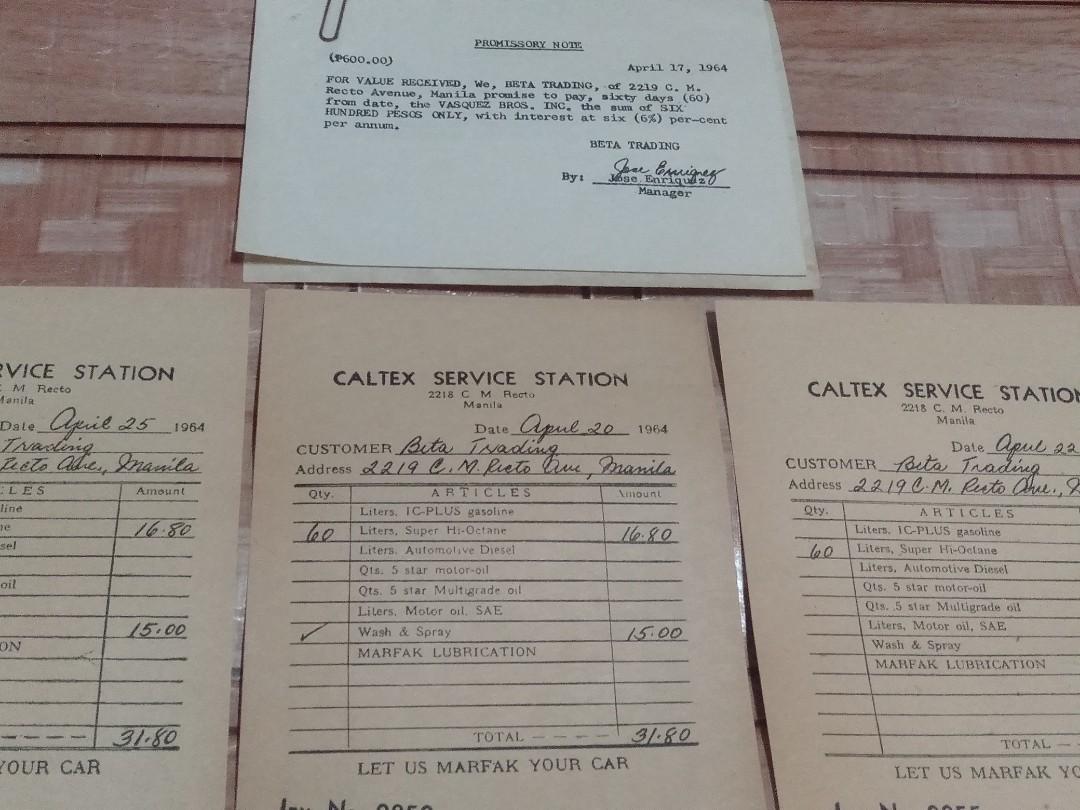 PROMISSORY NOTE
(₱600.00)
April 17, 1964
FOR VALUE RECEIVED, We, BETA TRADING, of 2219 C. M.
Recto Avenue, Manila promise to pay, sixty days (60)
from date, the VASQUEZ BROS. INC. the sum of SIX
HUNDRED PESOS ONLY, with interest at six (6%) per-cent
per annum.
BETA TRADING
Jose Enriquez
By: Jose Enriquez
Manager
RVICE STATION
C M Recto
Manila
Date April 25 1964
Trading
Recto Ave., Manila
CLES Amount
line
ne 16.80
sel
oil
15.00
ON
---- 31.80
YOUR CAR
CALTEX SERVICE STATION
2218 C M Recto
Manila
Date April 20 1964
CUSTOMER Beta Trading
Address 2219 C.M. Recto Ave, Manila
Qty. ARTICLES Amount
Liters, IC-PLUS gasoline
60 Liters, Super Hi-Octane 16.80
Liters. Automotive Diesel
Qts. 5 star motor-oil
Qts. 5 star Multigrade oil
Liters, Motor oil, SAE
✓ Wash & Spray 15.00
MARFAK LUBRICATION
TOTAL ---- 31.80
LET US MARFAK YOUR CAR
CALTEX SERVICE STATION
2218 C. M. Recto
Manila
Date April 22
CUSTOMER Beta Trading
Address 2219 C.M. Recto Ave.,
Qty. ARTICLES
Liters, IC-PLUS gasoline
60 Liters, Super Hi-Octane
Liters, Automotive Diesel
Qts. 5 star motor-oil
Qts. 5 star Multigrade oil
Liters, Motor oil, SAE
Wash & Spray
MARFAK LUBRICATION
TOTAL --
LET US MARFAK YO